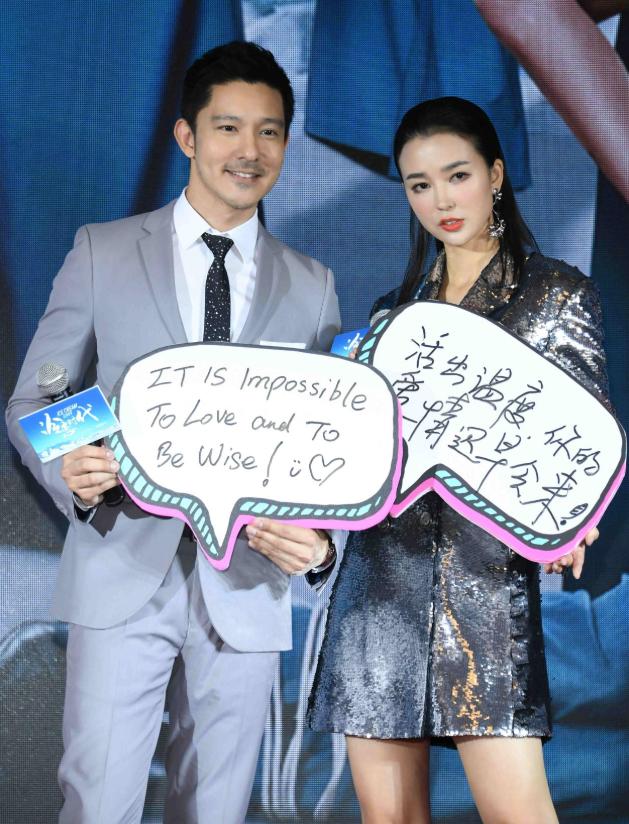 IT IS Impossible
To Love and To
Be Wise!
活出温度
你的
爱情迟早会来